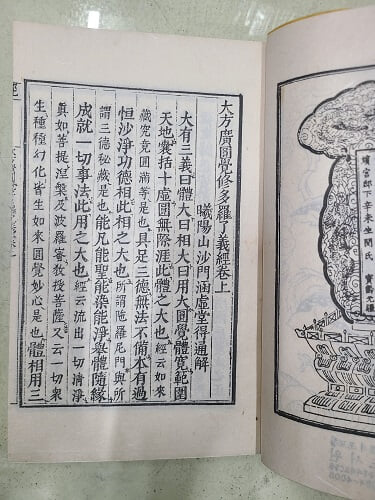 嬪宮邸下辛未生閔氏 寶齡無疆
大方廣圓覺修多羅了義經卷上
曦陽山沙門涵虛堂得通解
大有三義曰體大曰相大曰用大圓覺體寬範圍
天地囊括十虛圓無際涯此體之大也經云如來
藏究竟圓滿等是也具足三德無法不備本有過
恒沙淨功德相此相之大也所謂陁羅尼門與所
謂三德秘藏是也能凡能聖能染能淨舉體隨緣
成就一切事法此用之大也經云流出一切淸淨
眞如菩提涅槃及波羅蜜敎授菩薩又云一切衆
生種種幻化皆生如來圓覺妙心是也體相用三